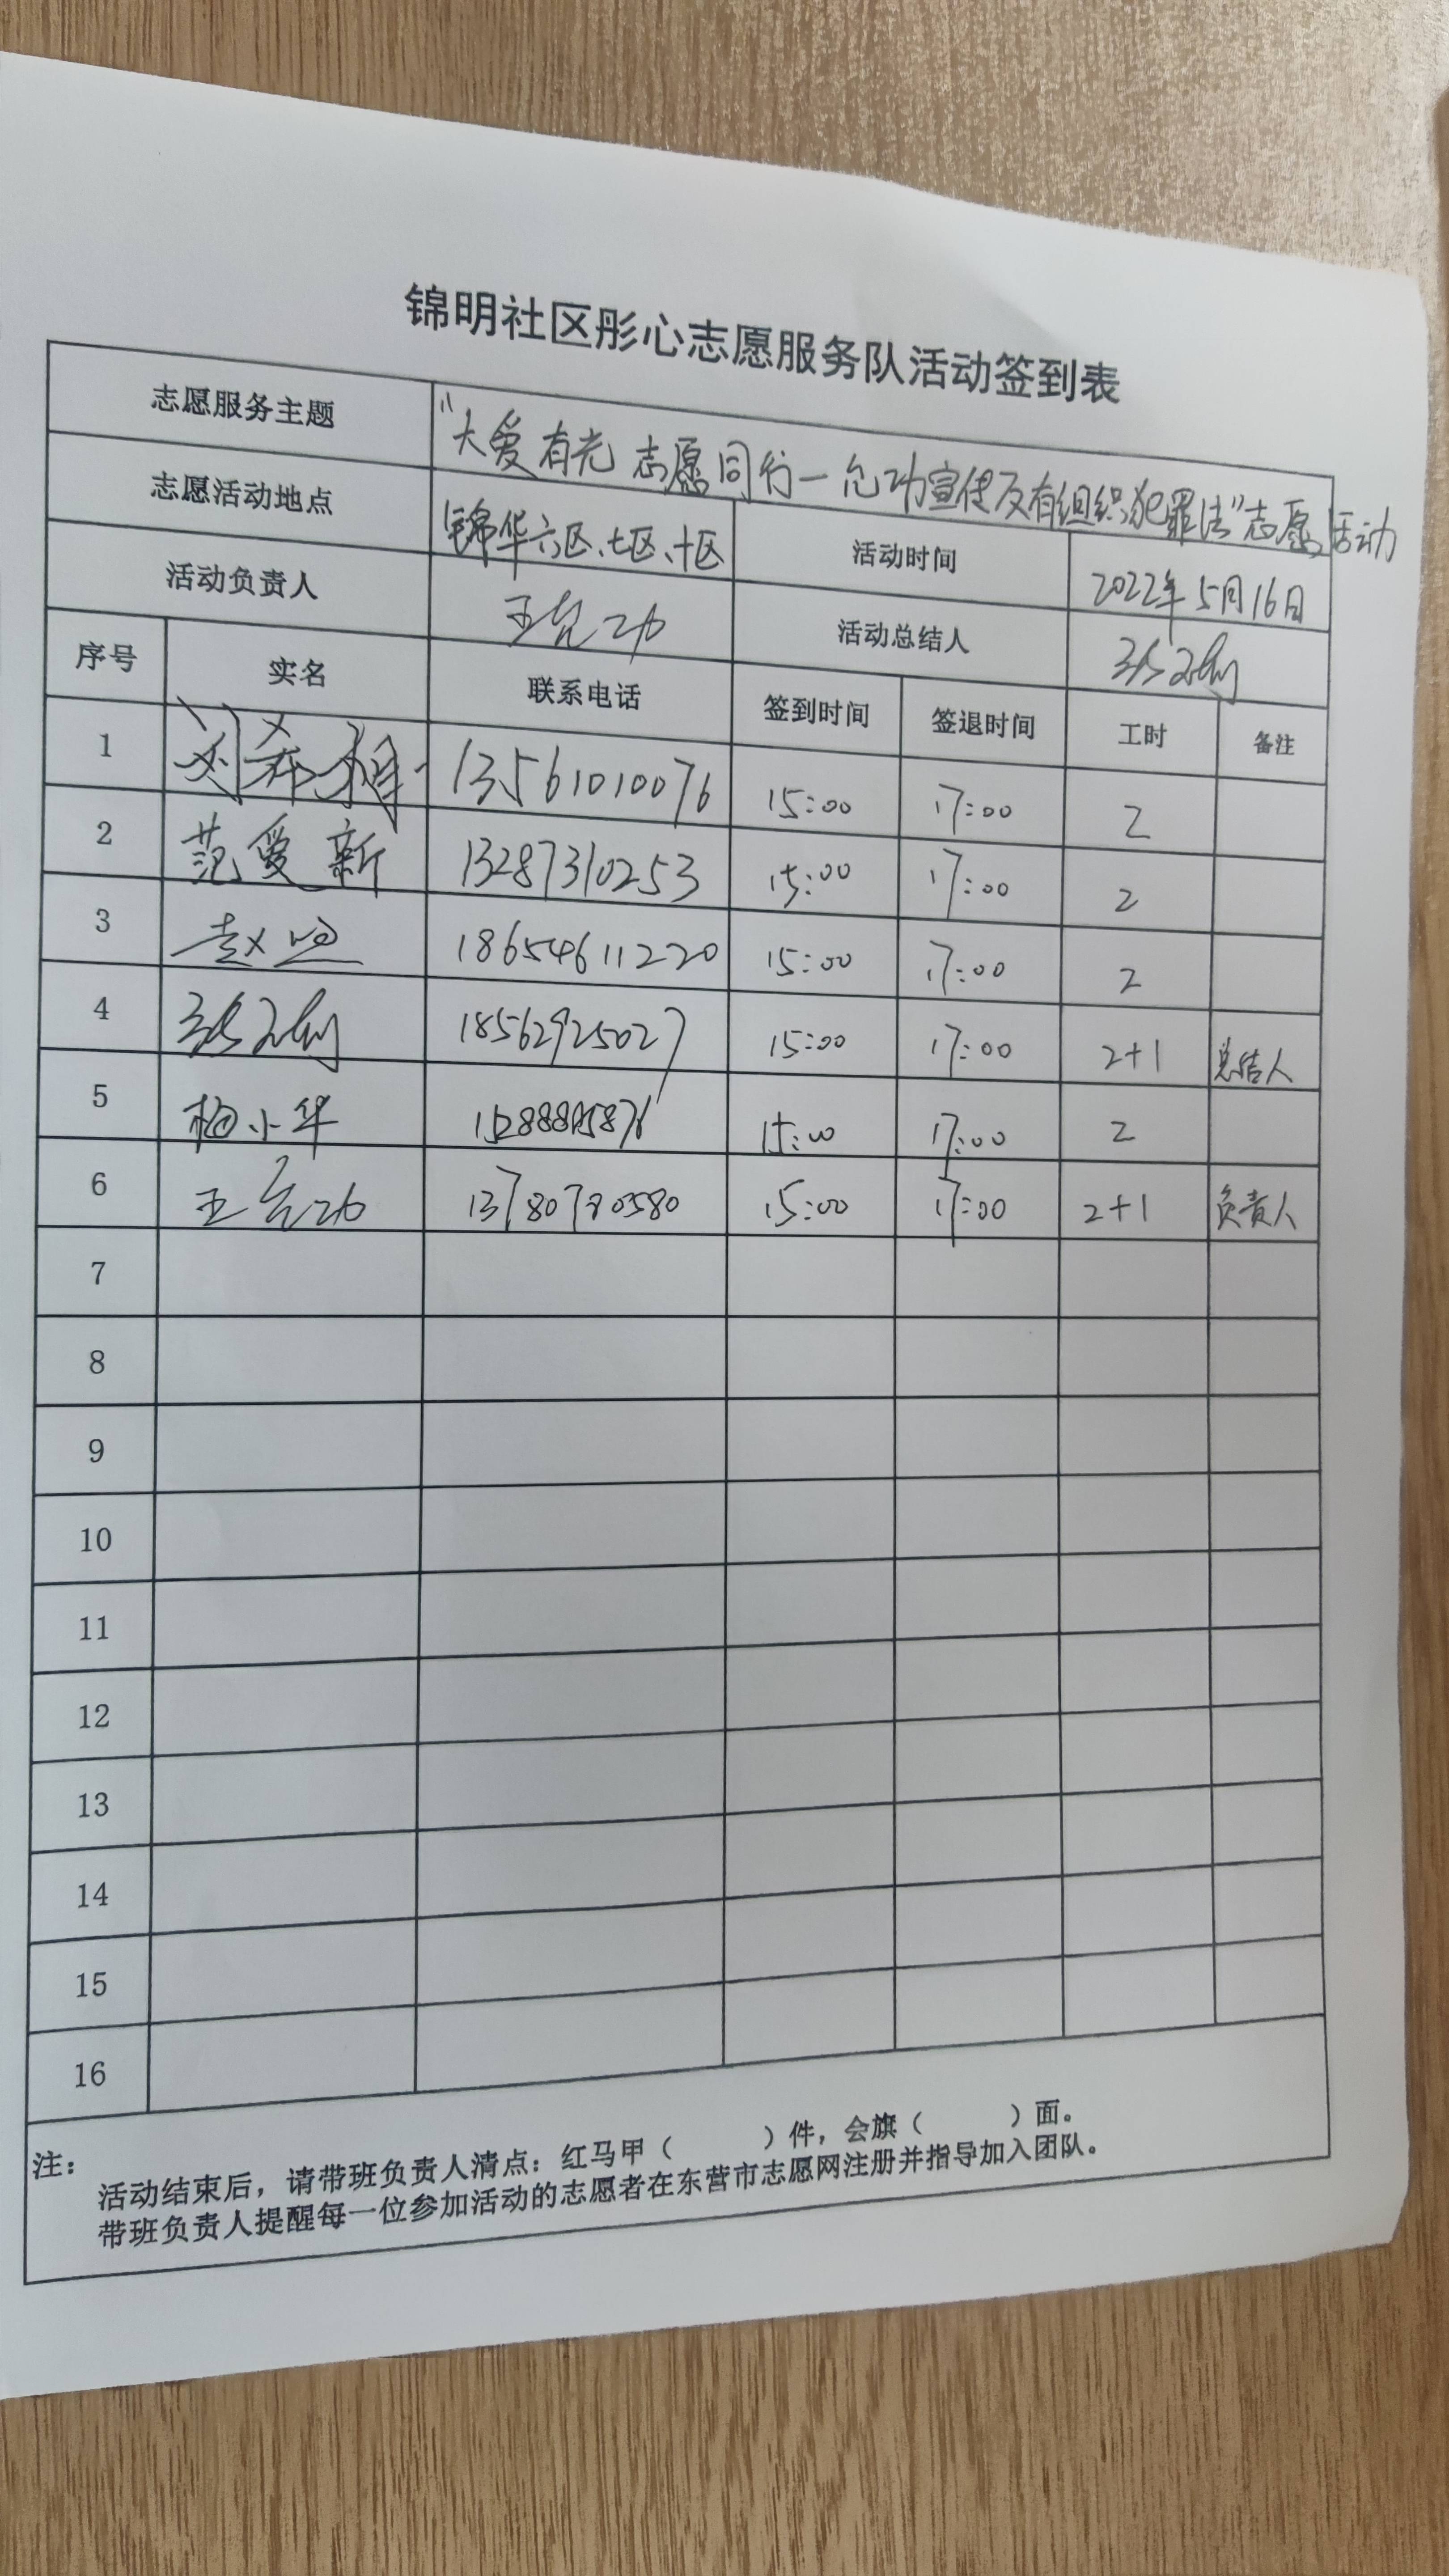 锦明社区彤心志愿服务队活动签到表
志愿服务主题 "大爱有光 志愿同行一 宣传反有组织犯罪法"志愿活动
志愿活动地点 锦华六区、七区、十区 活动时间 2022年5月16日
活动负责人 王 功 活动总结人
序号 实名 联系电话 签到时间 签退时间 工时 备注
1 刘 13561010076 15:00 17:00 2
2 范爱新 13287310253 15:00 17:00 2
3 赵 18654611220 15:00 17:00 2
4 18562925027 15:00 17:00 2+1 总结人
5 杨小华 15:00 17:00 2
6 王 功 13780780580 15:00 17:00 2+1 负责人
7
8
9
10
11
12
13
14
15
16
注:
活动结束后,请带班负责人清点:红马甲( )件,会旗( )面。
带班负责人提醒每一位参加活动的志愿者在东营市志愿网注册并指导加入团队。